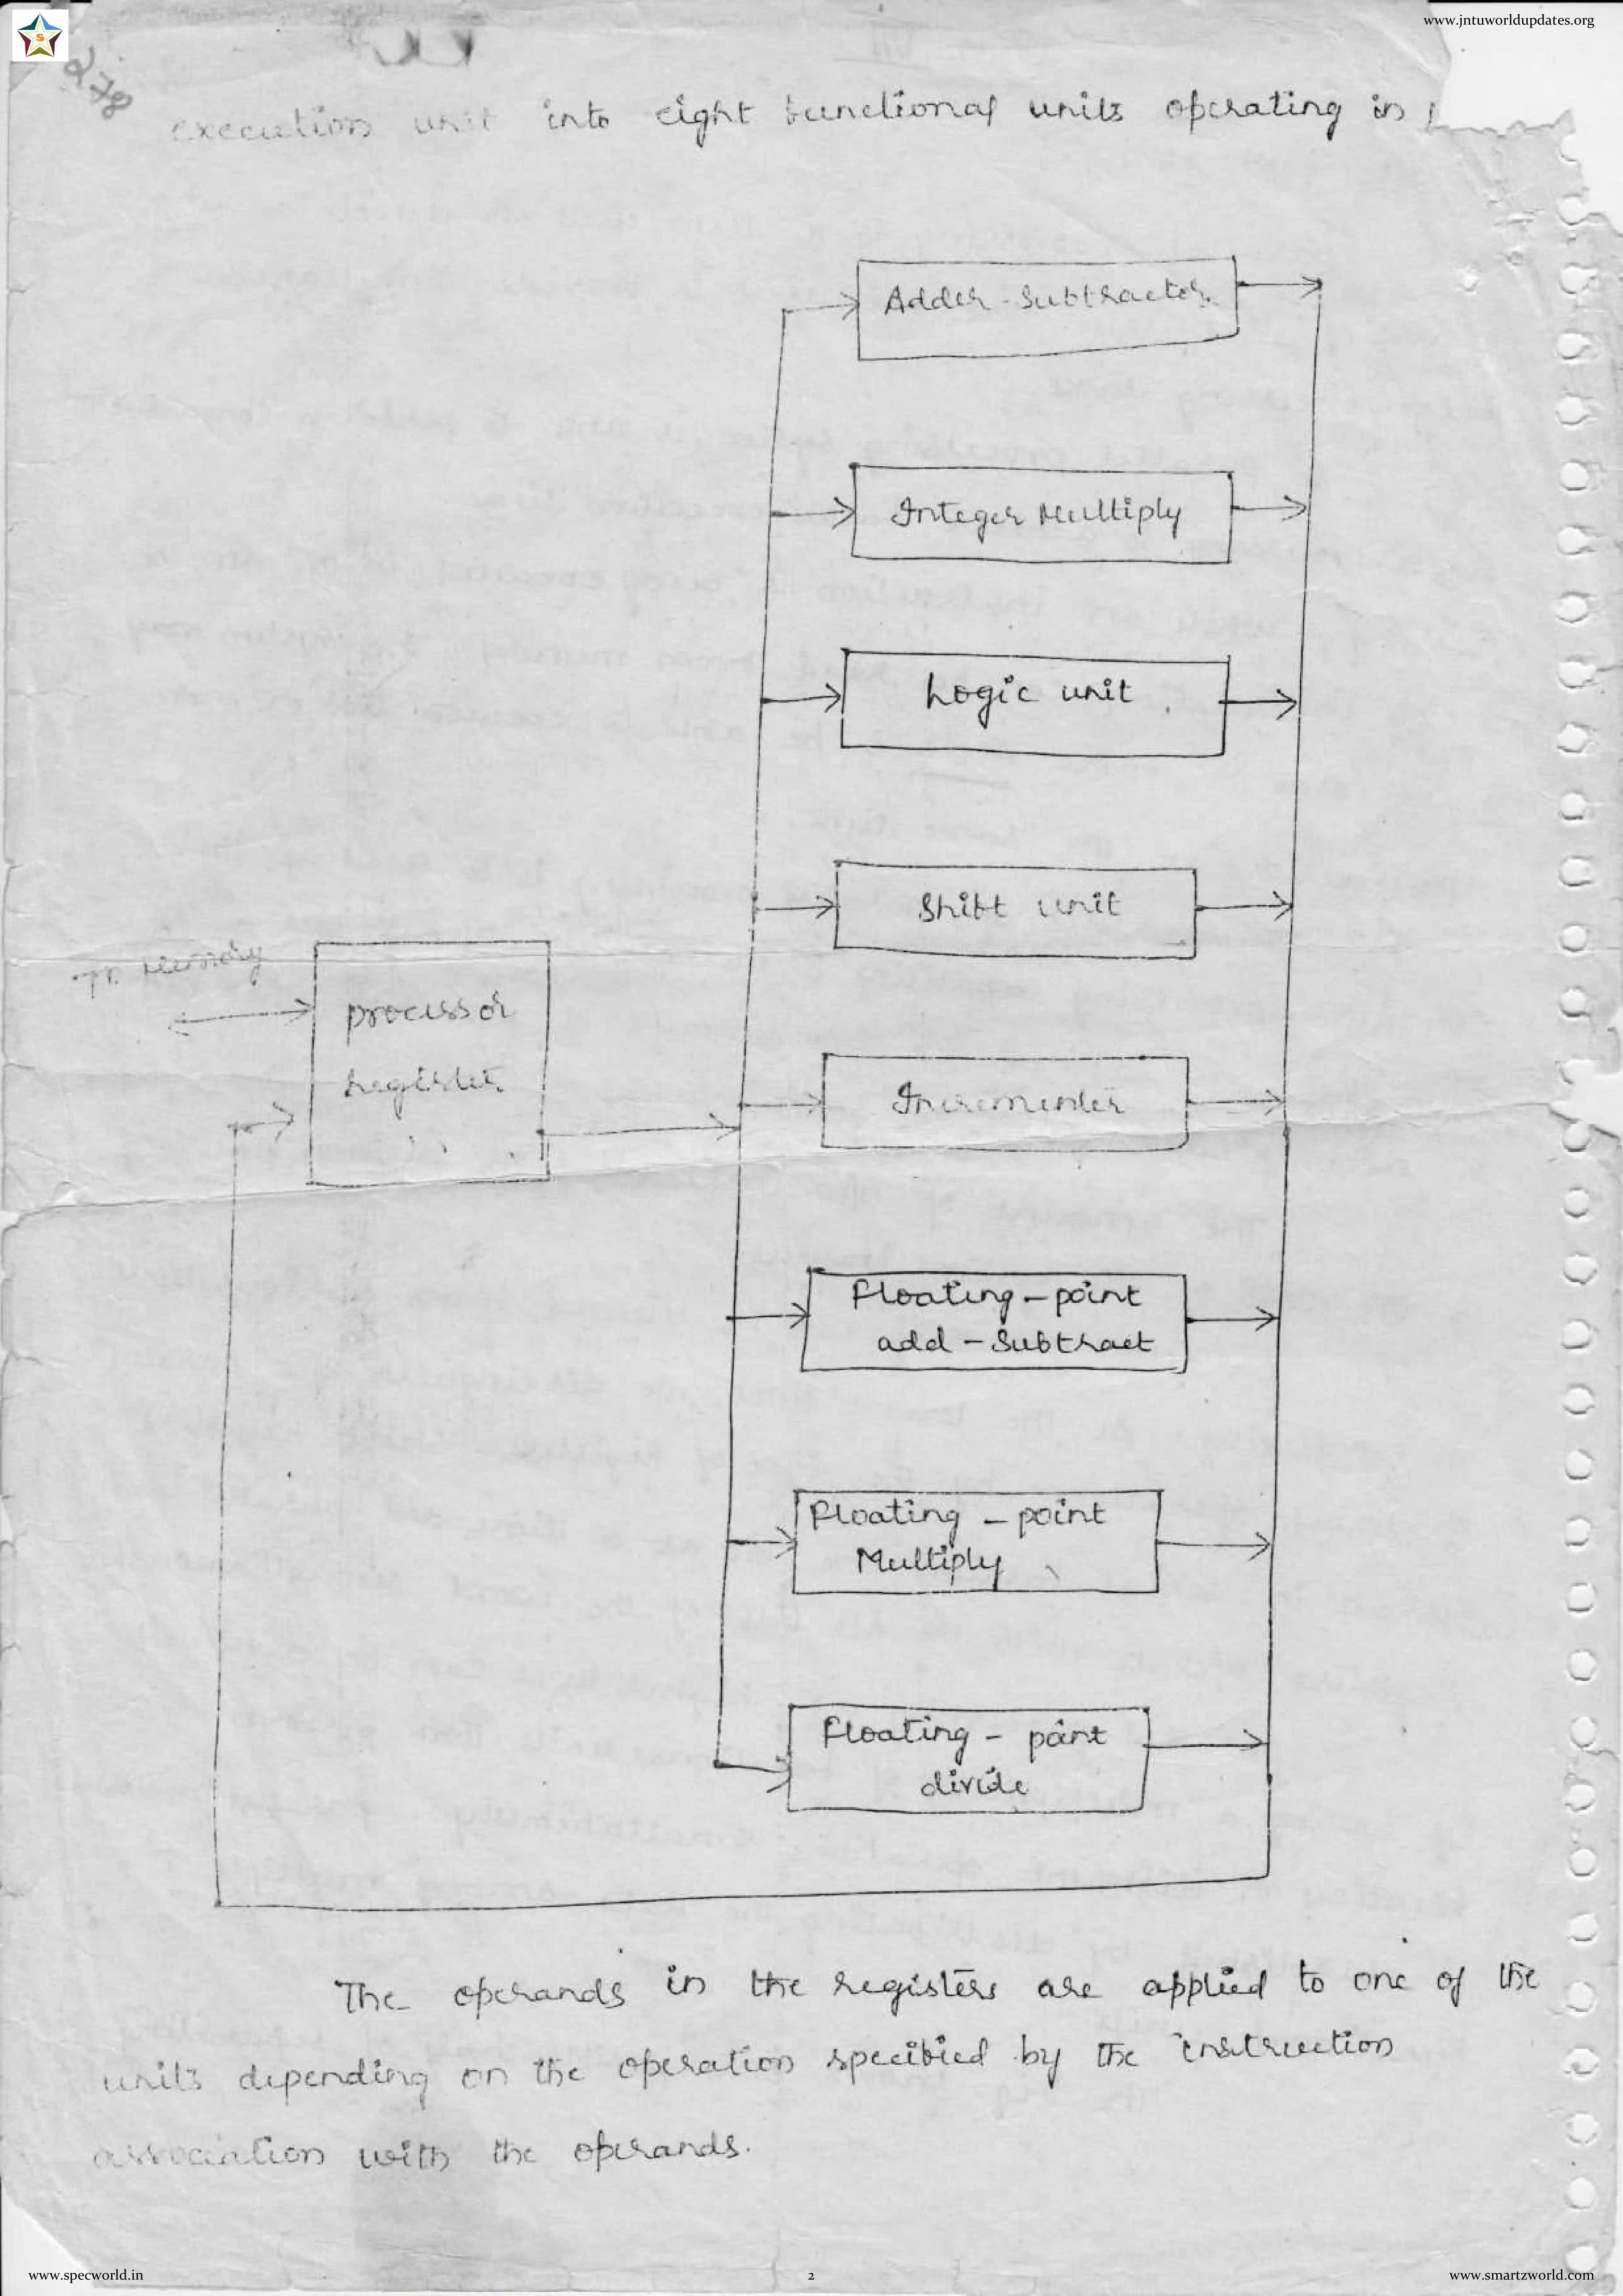 www.jntuworldupdates.org
S
278
execution unit into eight functional units operating in
Adder-Subtractor
Integer Multiply
Logic unit
Shift unit
To Memory
processor
register
Incrementer
Floating-point
add-Subtract
Floating-point
Multiply
Floating-point
divide
The operands in the registers are applied to one of the
units depending on the operation specified by the instruction
association with the operands.
www.specworld.in
2
www.smartzworld.com